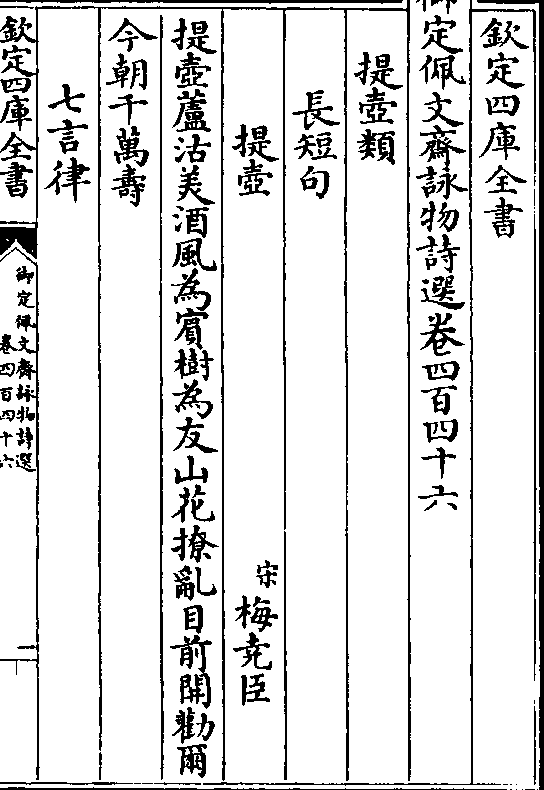 欽定四庫全書
御定佩文齋詠物詩選卷四百四十六
提壺類
長短句
提壺
宋梅堯臣
提壺蘆沽美酒風為賓樹為友山花撩亂目前開勸爾
今朝千萬壽
七言律
欽定四庫全書
御定佩文齋詠物詩選
卷四百四十六
一